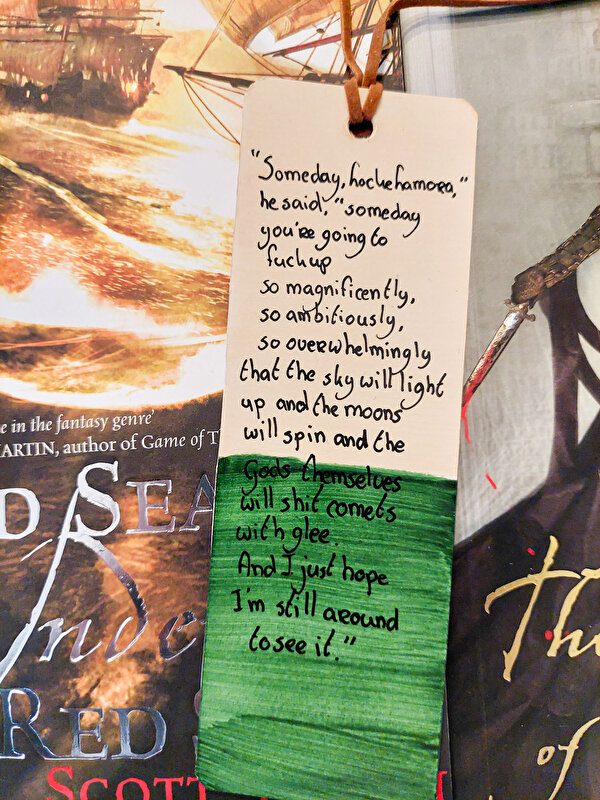 "Someday, Locke Lamora,"
he said, "someday
you're going to
fuck up
so magnificently,
so ambitiously,
so overwhelmingly
that the sky will light
up and the moons
will spin and the
Gods themselves
will shit comets
with glee.
And I just hope
I'm still around
to see it."
e in the fantasy genre'
ARTIN, author of Game of T
D SEA
nde
RED S
SCOTT
The
of